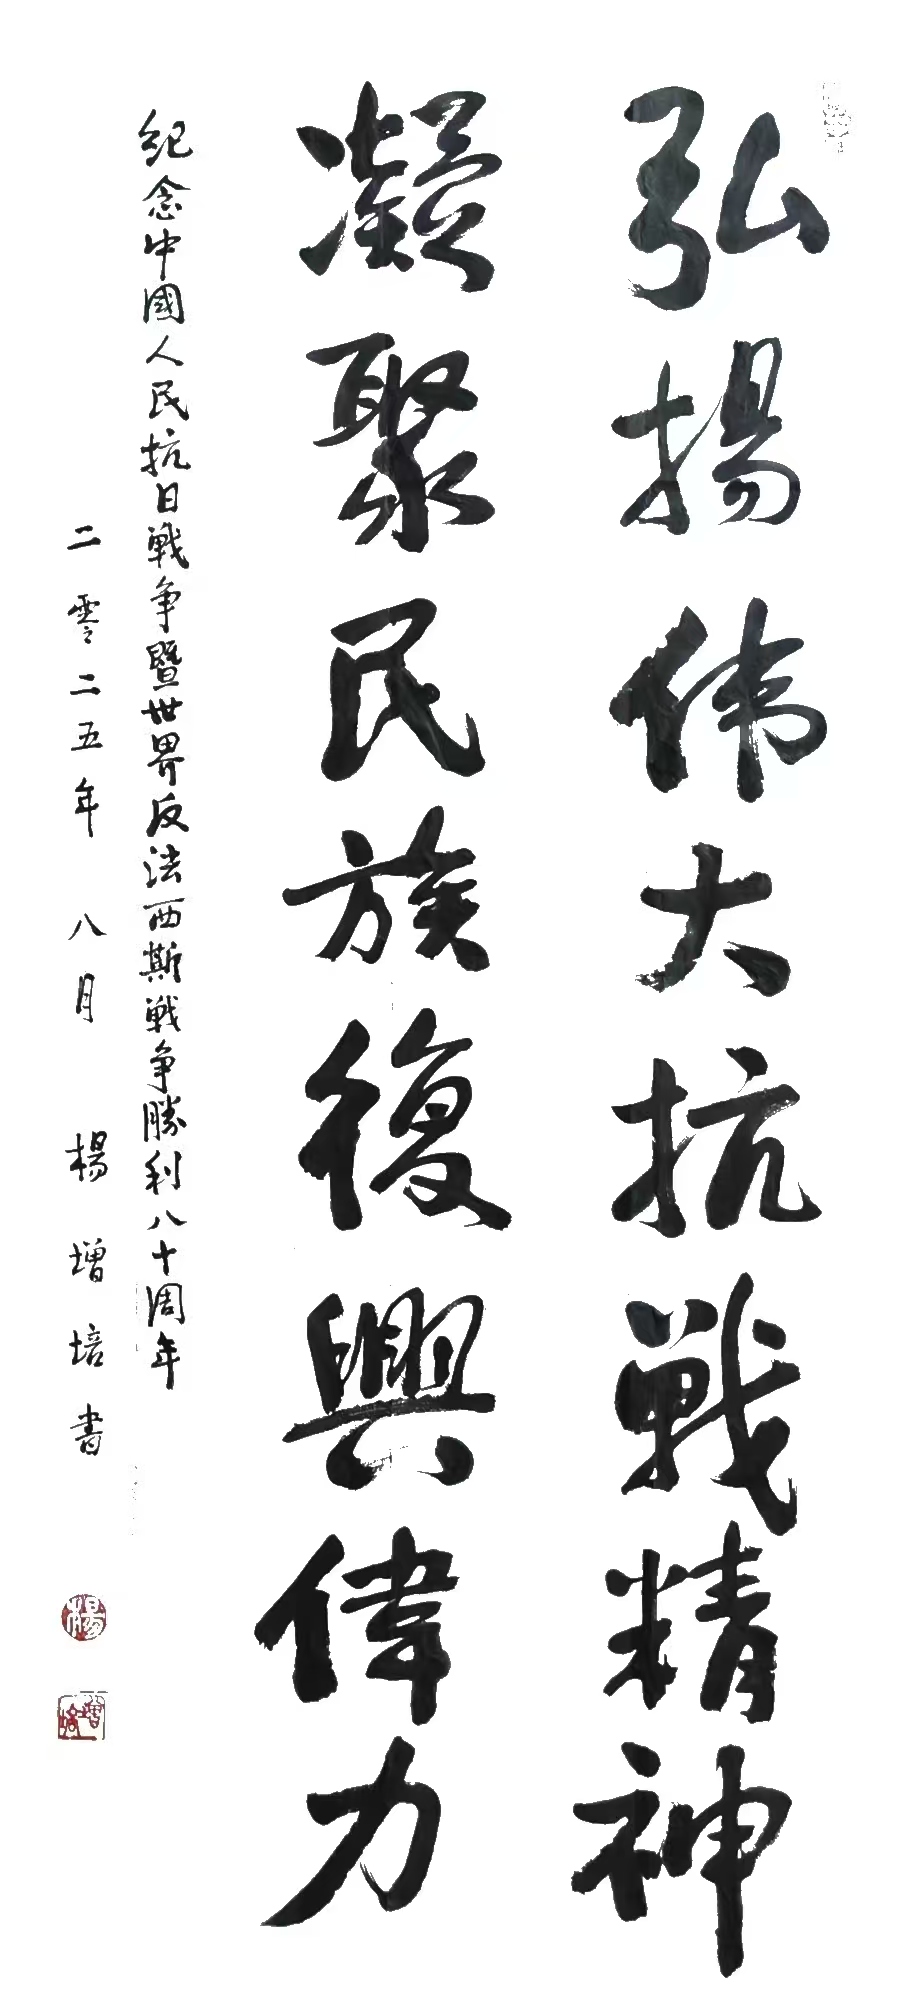 弘揚伟大抗戰精神
凝聚民族復興偉力
紀念中國人民抗日戰争暨世界反法西斯戰争勝利八十周年
二零二五年 八月 楊增培書
楊
增培